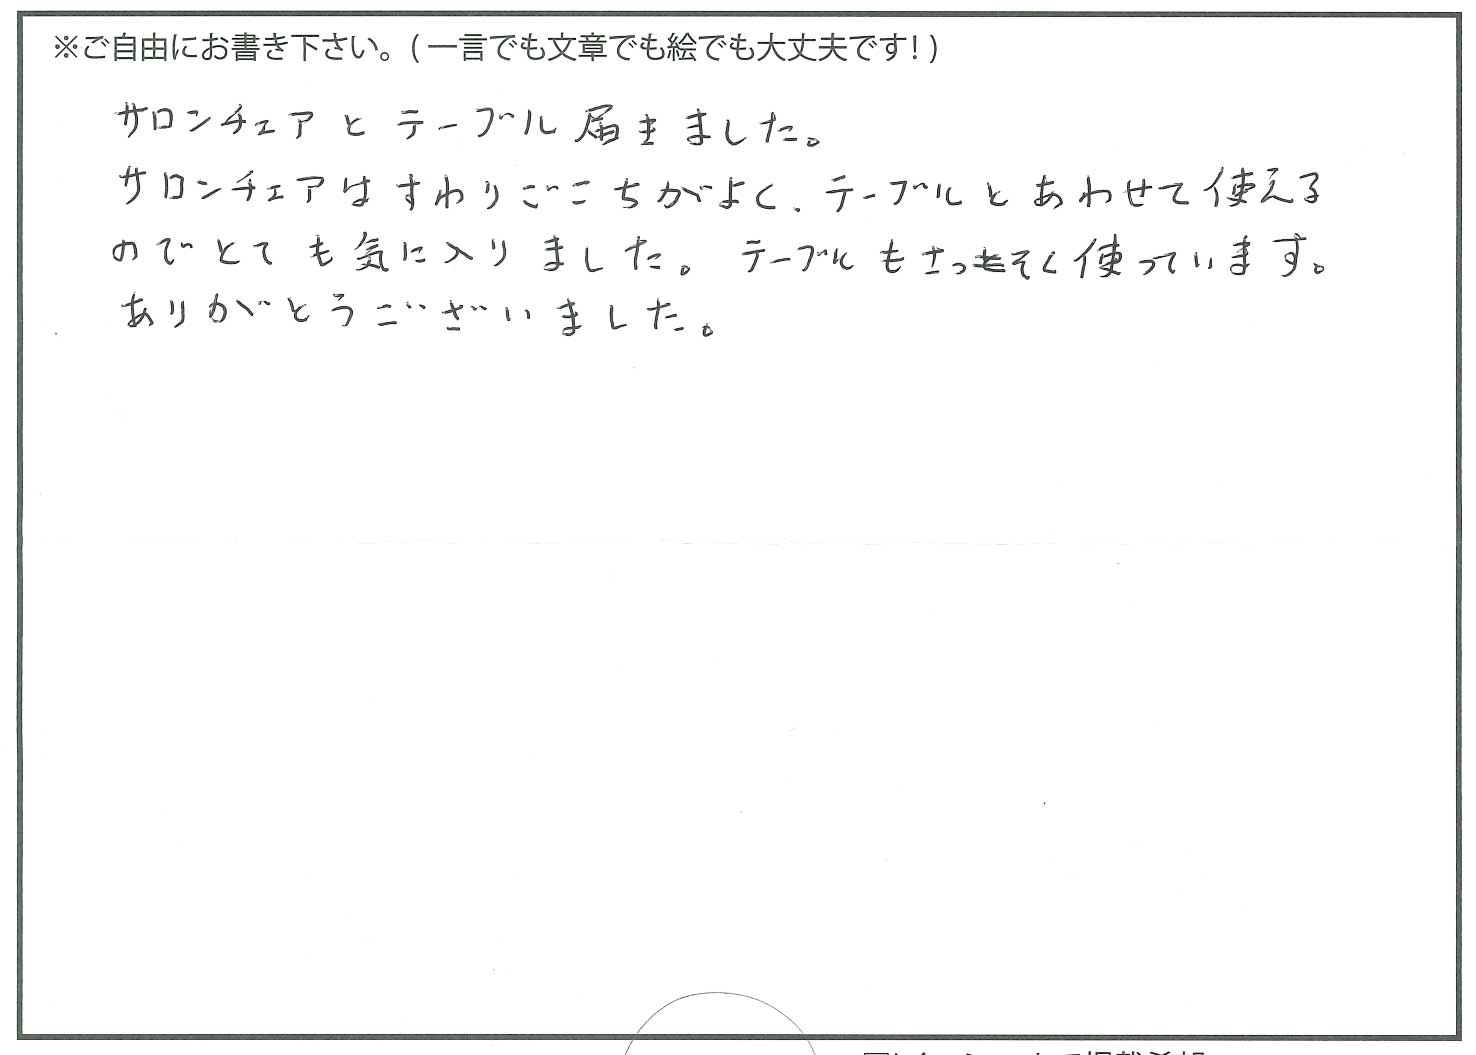 ※ご自由にお書き下さい。(一言でも文章でも絵でも大丈夫です!)
サロンチェアとテーブル届きました。
サロンチェアはすわりごこちがよく、テーブルとあわせて使える
のでとても気に入りました。テーブルもさっそく使っています。
ありがとうございました。